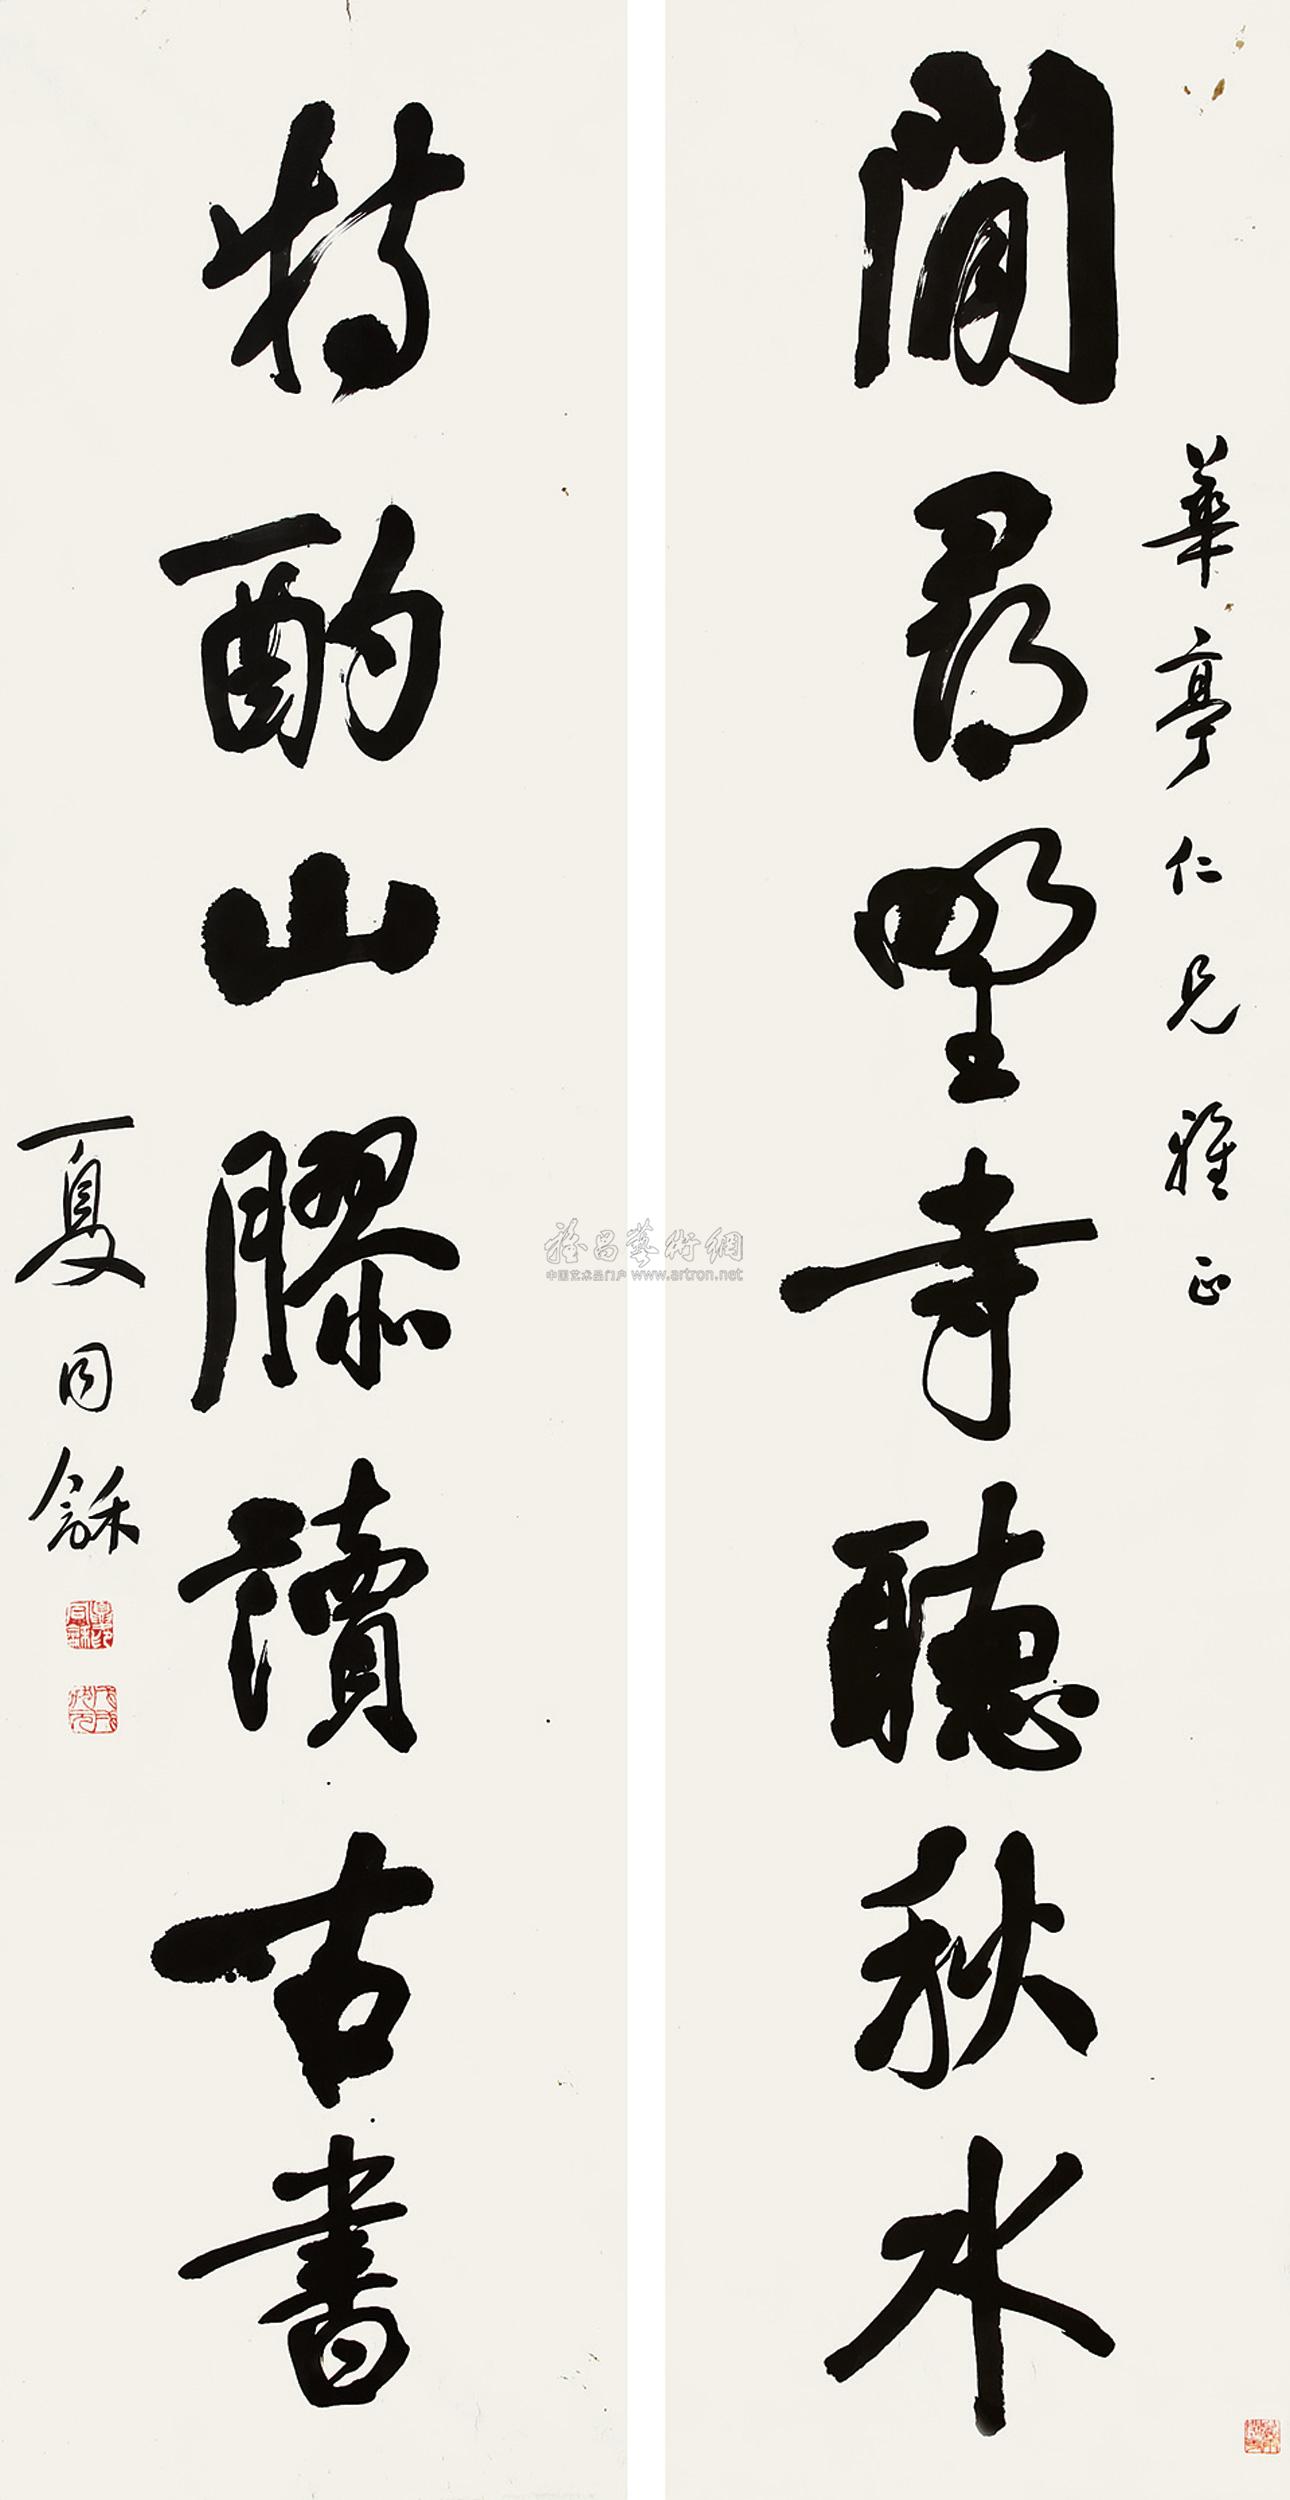 華亭仁兄雅正
閒尋野寺聽秋水
特酌山醪讀古書
夏同龢
雅昌藝術網
中国艺术品门户 www.artron.net